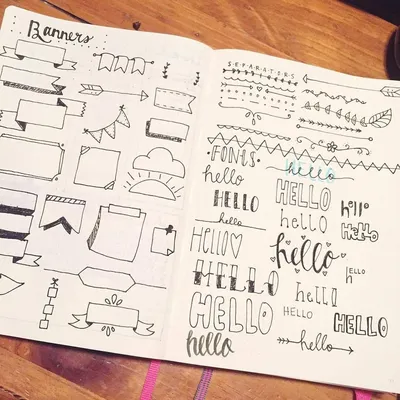 Banners
SEPARATERS
FONTS
hello
hello
HELLO
HELLO
hello
hello
hello
HELLO
hello
HELLO
hello
HELLO
hello
HELLO
HELLO
HELLO
hello
hello